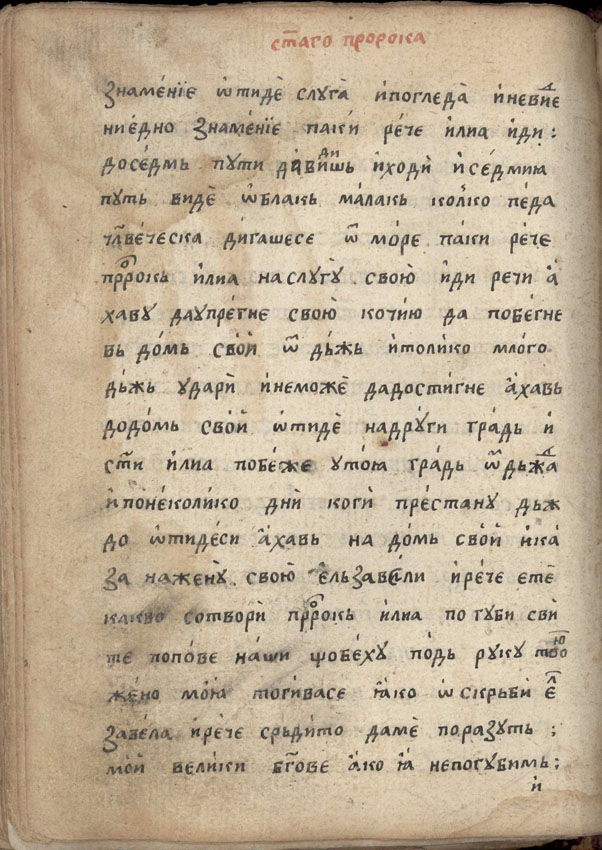 ст҃аго пророка
знаме́нїе ѿтидѐ слуга̀ ѝпогледа̀ ѝневиⷣе
ние́дно знаме́нїе паки̑ ре́че и҆лиа и҆ди :
досе́дмь пути да̀видишь ѝходѝ ѝсе́дмию
путь видѐ ѡ҆блакь ма́лакь коли́ко пе́да
чл҃ве́ческа ди́гашесе ѿ мо́ре па́ки рече
прⷪ҇рокь и҆лиа наслугу̀ свою ѝди речи а҆
хаву даупре́гне свою кочи́ю да побе́гне
вь до́мь сво́й ѿ дь́жь ѝтоли́ко мло́го
дь́жь ударѝ ѝнеможѐ дадости́гне а҆хавь
додо́мь сво́й ѿтидѐ надру́ги гра́дь ѝ
ст҃и и҆лиа побе́же уто́ю гра́дь ѿ дьжⷣа
ѝпоне́колико днѝ когѝ пре́стану дьж
до ѿтиде́си а҆хавь на до́мь сво́й ѝка́
за наже́ну свою є҆льзаве́ли ѝре́че є҆те̑
како сотворѝ прⷪ҇рокь и҆лиа погуби сви̑
те попове на́ши що̀бе́ху по́дь руку твоⷽ
же́но мо́ꙗ тоги́васе ꙗ҆ко ѡ҆скрьби є҆ⷧ
заве́ла ѝре́че срьди́то дамѐ пора́зуть ;
мо́й вели́ки бг҃ове а҆ко ꙗ҆ непогу́бимь ;
ѝ